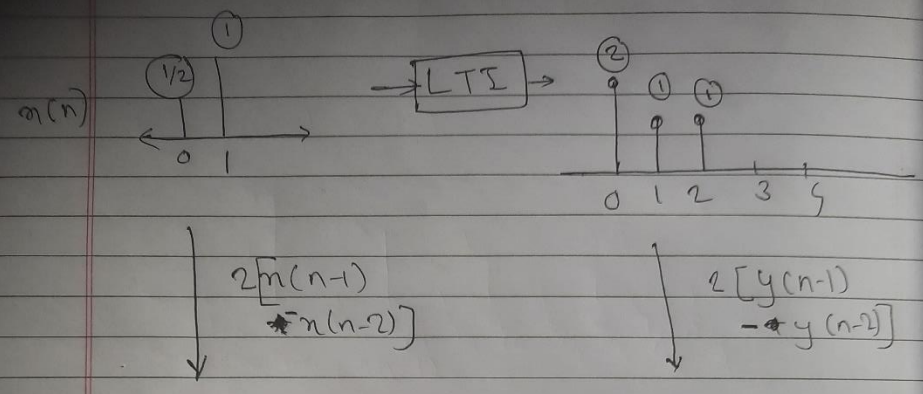 1
1/2
x(n)
0 1
LTI
2
1 1
0 1 2 3 4
2[x(n-1)
-x(n-2)]
2[y(n-1)
-y(n-2)]